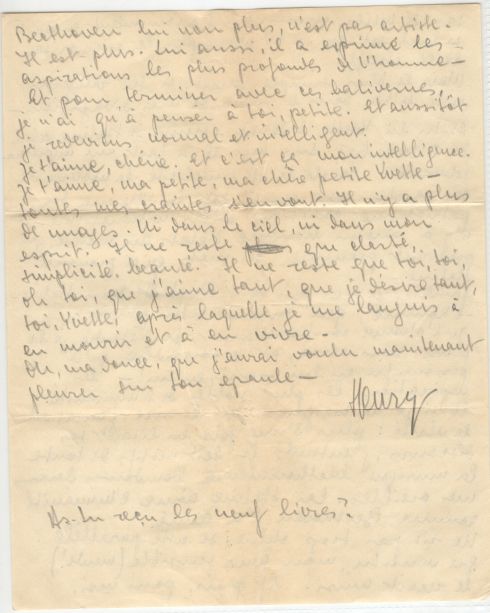 Beethoven lui non plus, n'est pas artiste.
Il est plus. Lui aussi, il a exprimé les
aspirations les plus profondes de l'homme—
Et pour terminer avec ces balivernes,
je n'ai qu'à penser à toi, petite. Et aussitôt
je redeviens normal et intelligent.
Je t'aime, chérie. Et c'est ça mon intelligence.
Je t'aime, ma petite, ma chère petite Yvette—
toutes mes craintes s'en vont. Il n'y a plus
de nuages. Ni dans le ciel, ni dans mon
esprit. Il ne reste que clarté,
simplicité, beauté. Il ne reste que toi, toi,
oh toi, que j'aime tant, que je désire tant,
toi, Yvette, après laquelle je me languis à
en mourir et à en vivre.
Oh, ma douce, que j'aurai voulu maintenant
pleurer sur ton epaule—
Henry
As-tu reçu les neuf livres?